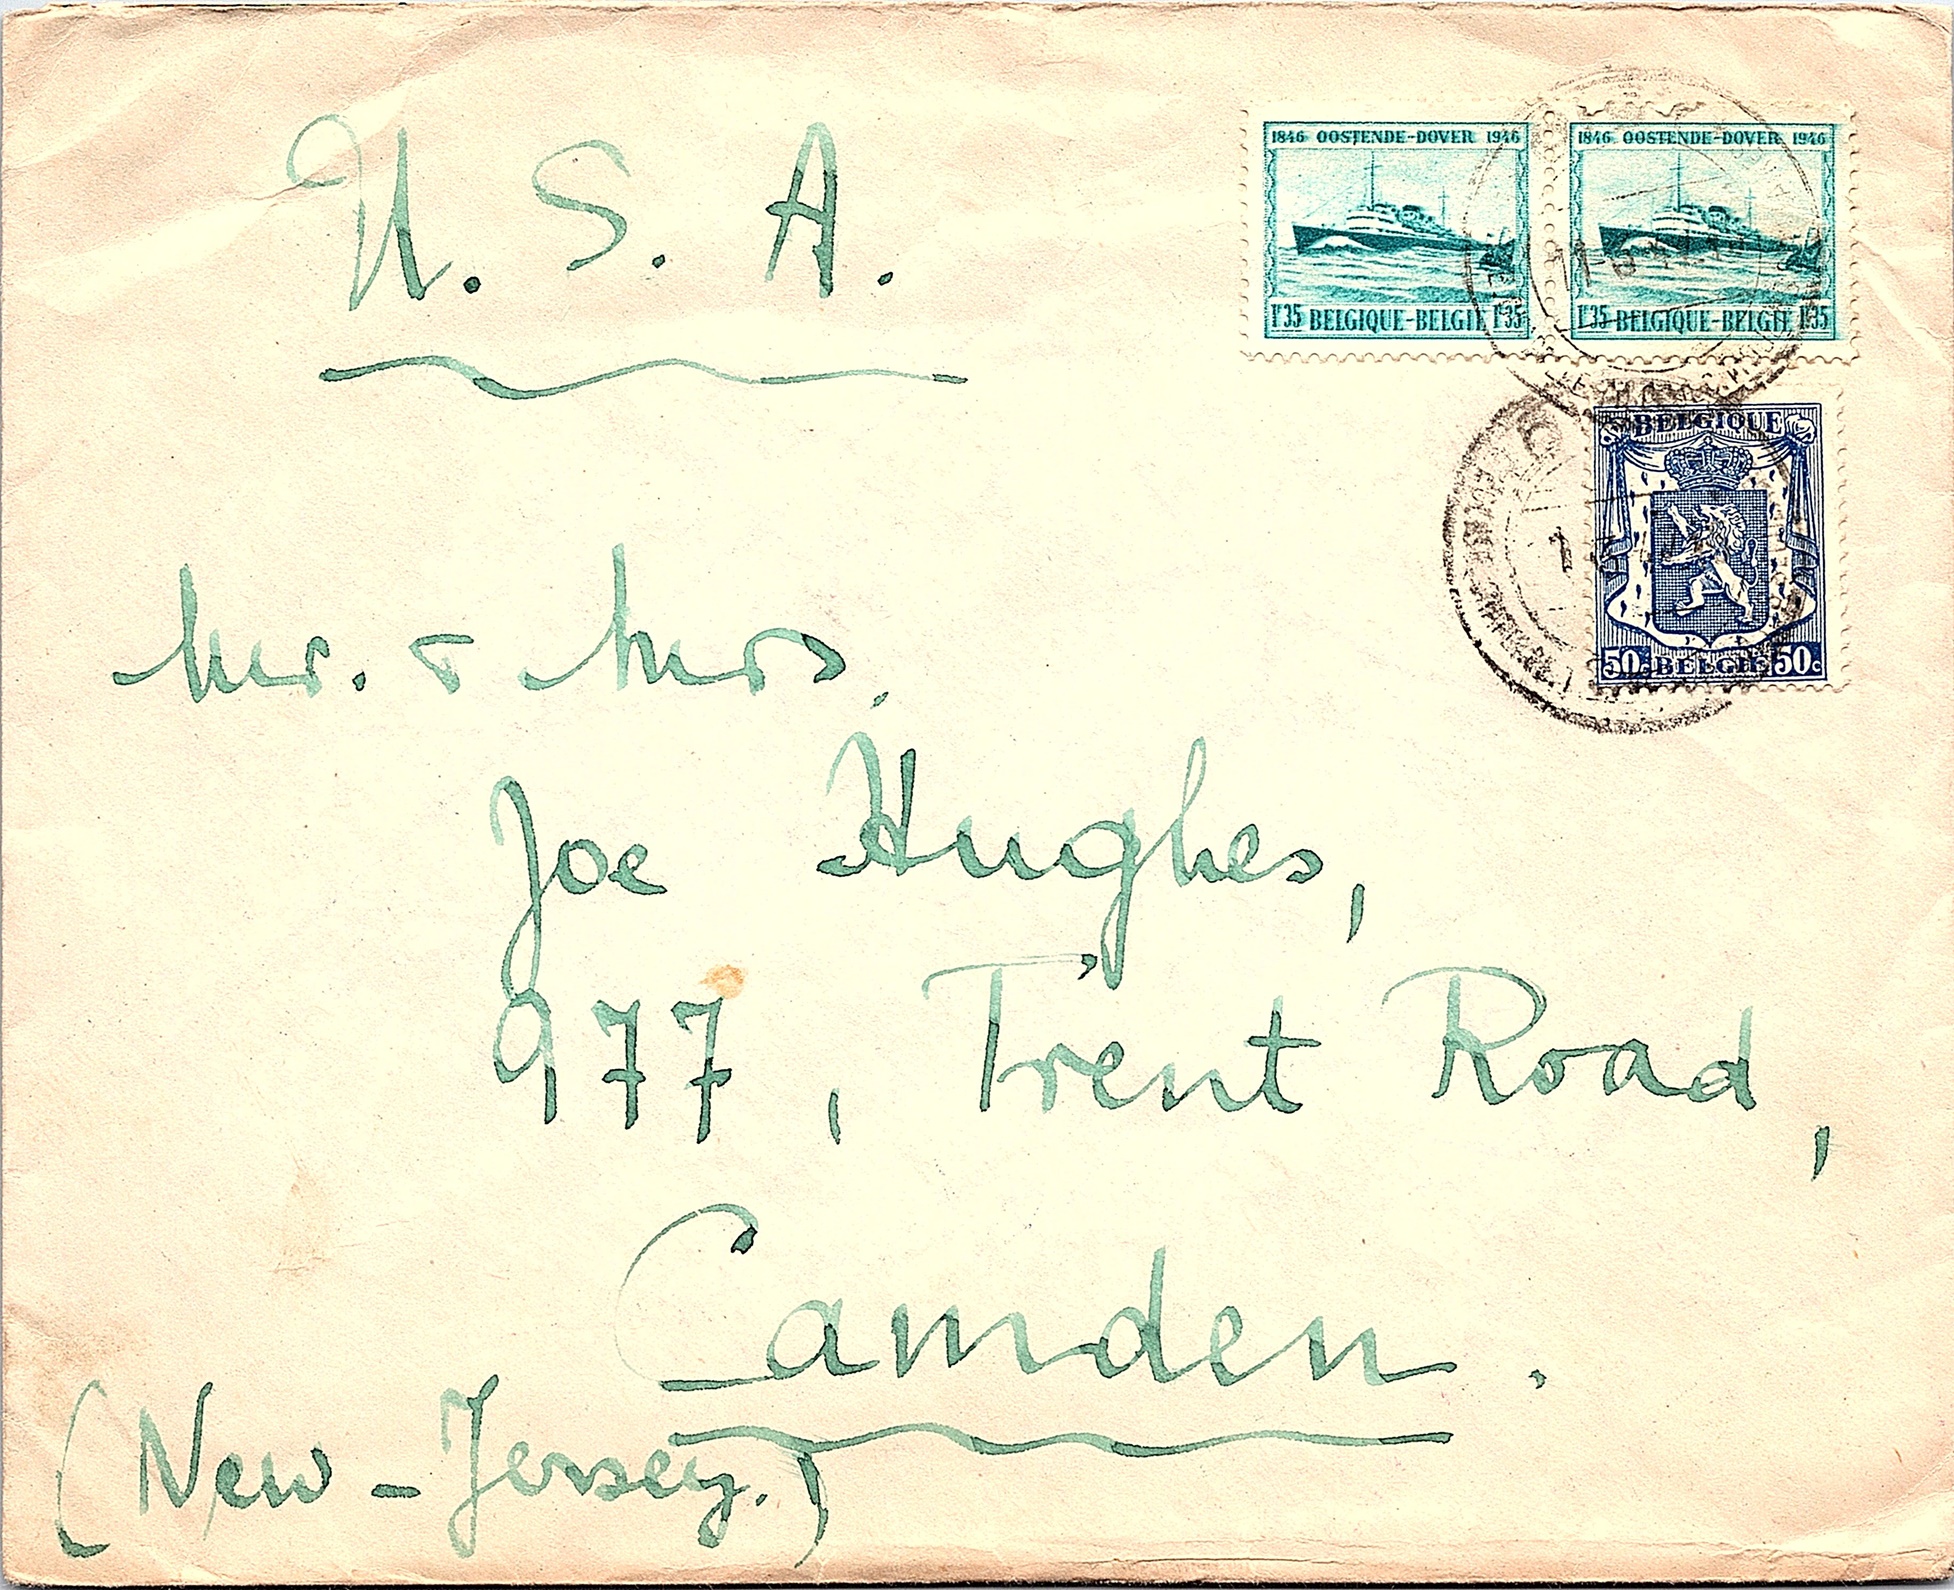 U. S. A.
1846 OOSTENDE-DOVER 1946
1F35 BELGIQUE-BELGIE 1F35
1846 OOSTENDE-DOVER 1946
1F35 BELGIQUE-BELGIE 1F35
BELGIQUE
50c BELGIE 50c
Mr. & Mrs.
Joe Hughes,
977, Trent Road,
Camden.
(New-Jersey.)